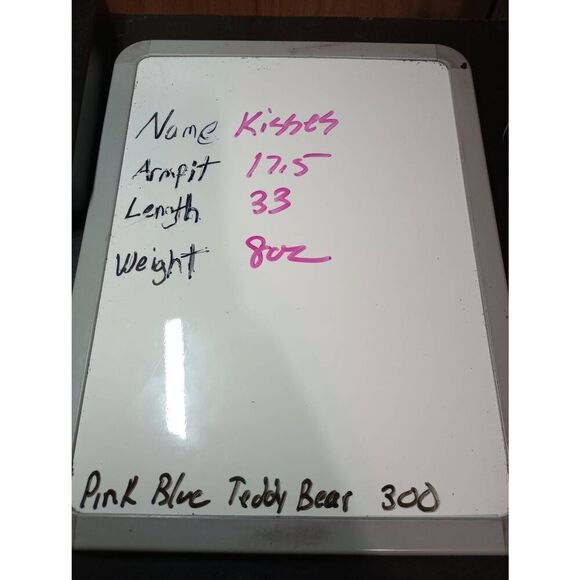 Name Kisses
Armpit 17.5
Length 33
Weight 8oz
Pink Blue Teddy Bear 300